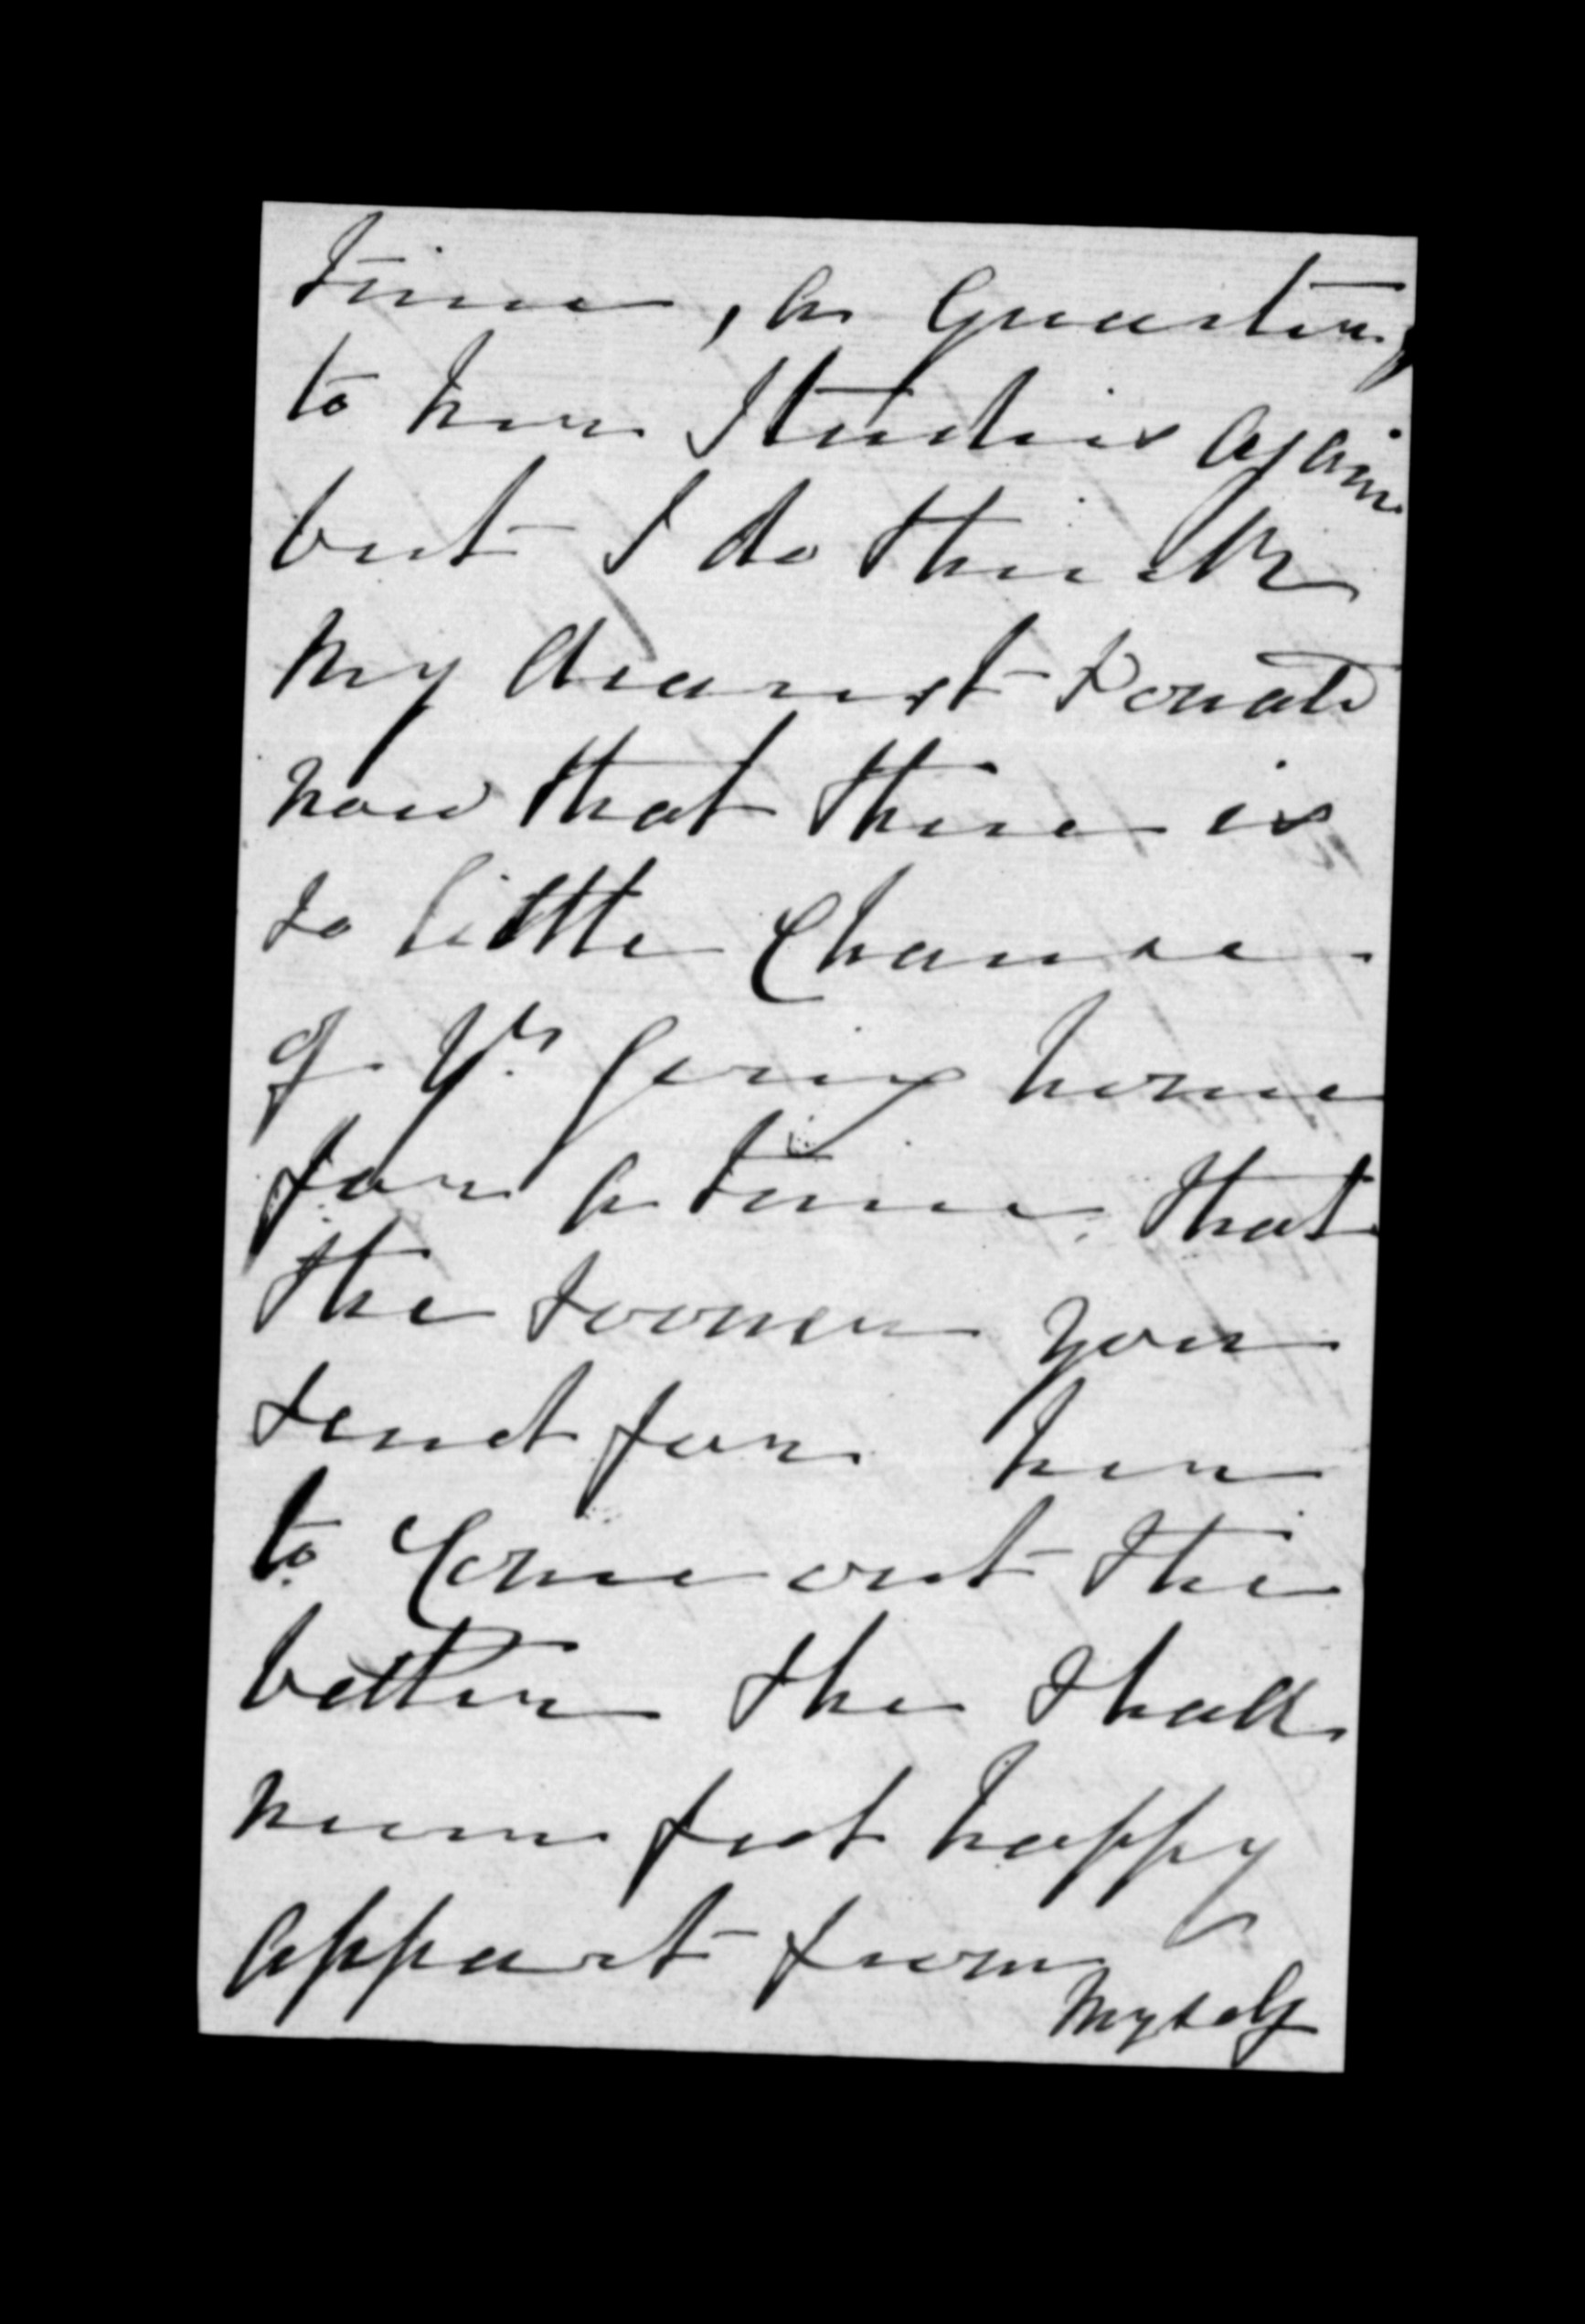 time, a Quarter,
to her Studies again
but I do think
my dearest Donald
now that there is
so little Chance
of Yr. going home
for a time, that
the sooner you
send for her
to Come out the
better she shall
never feel happy
appart from
myself